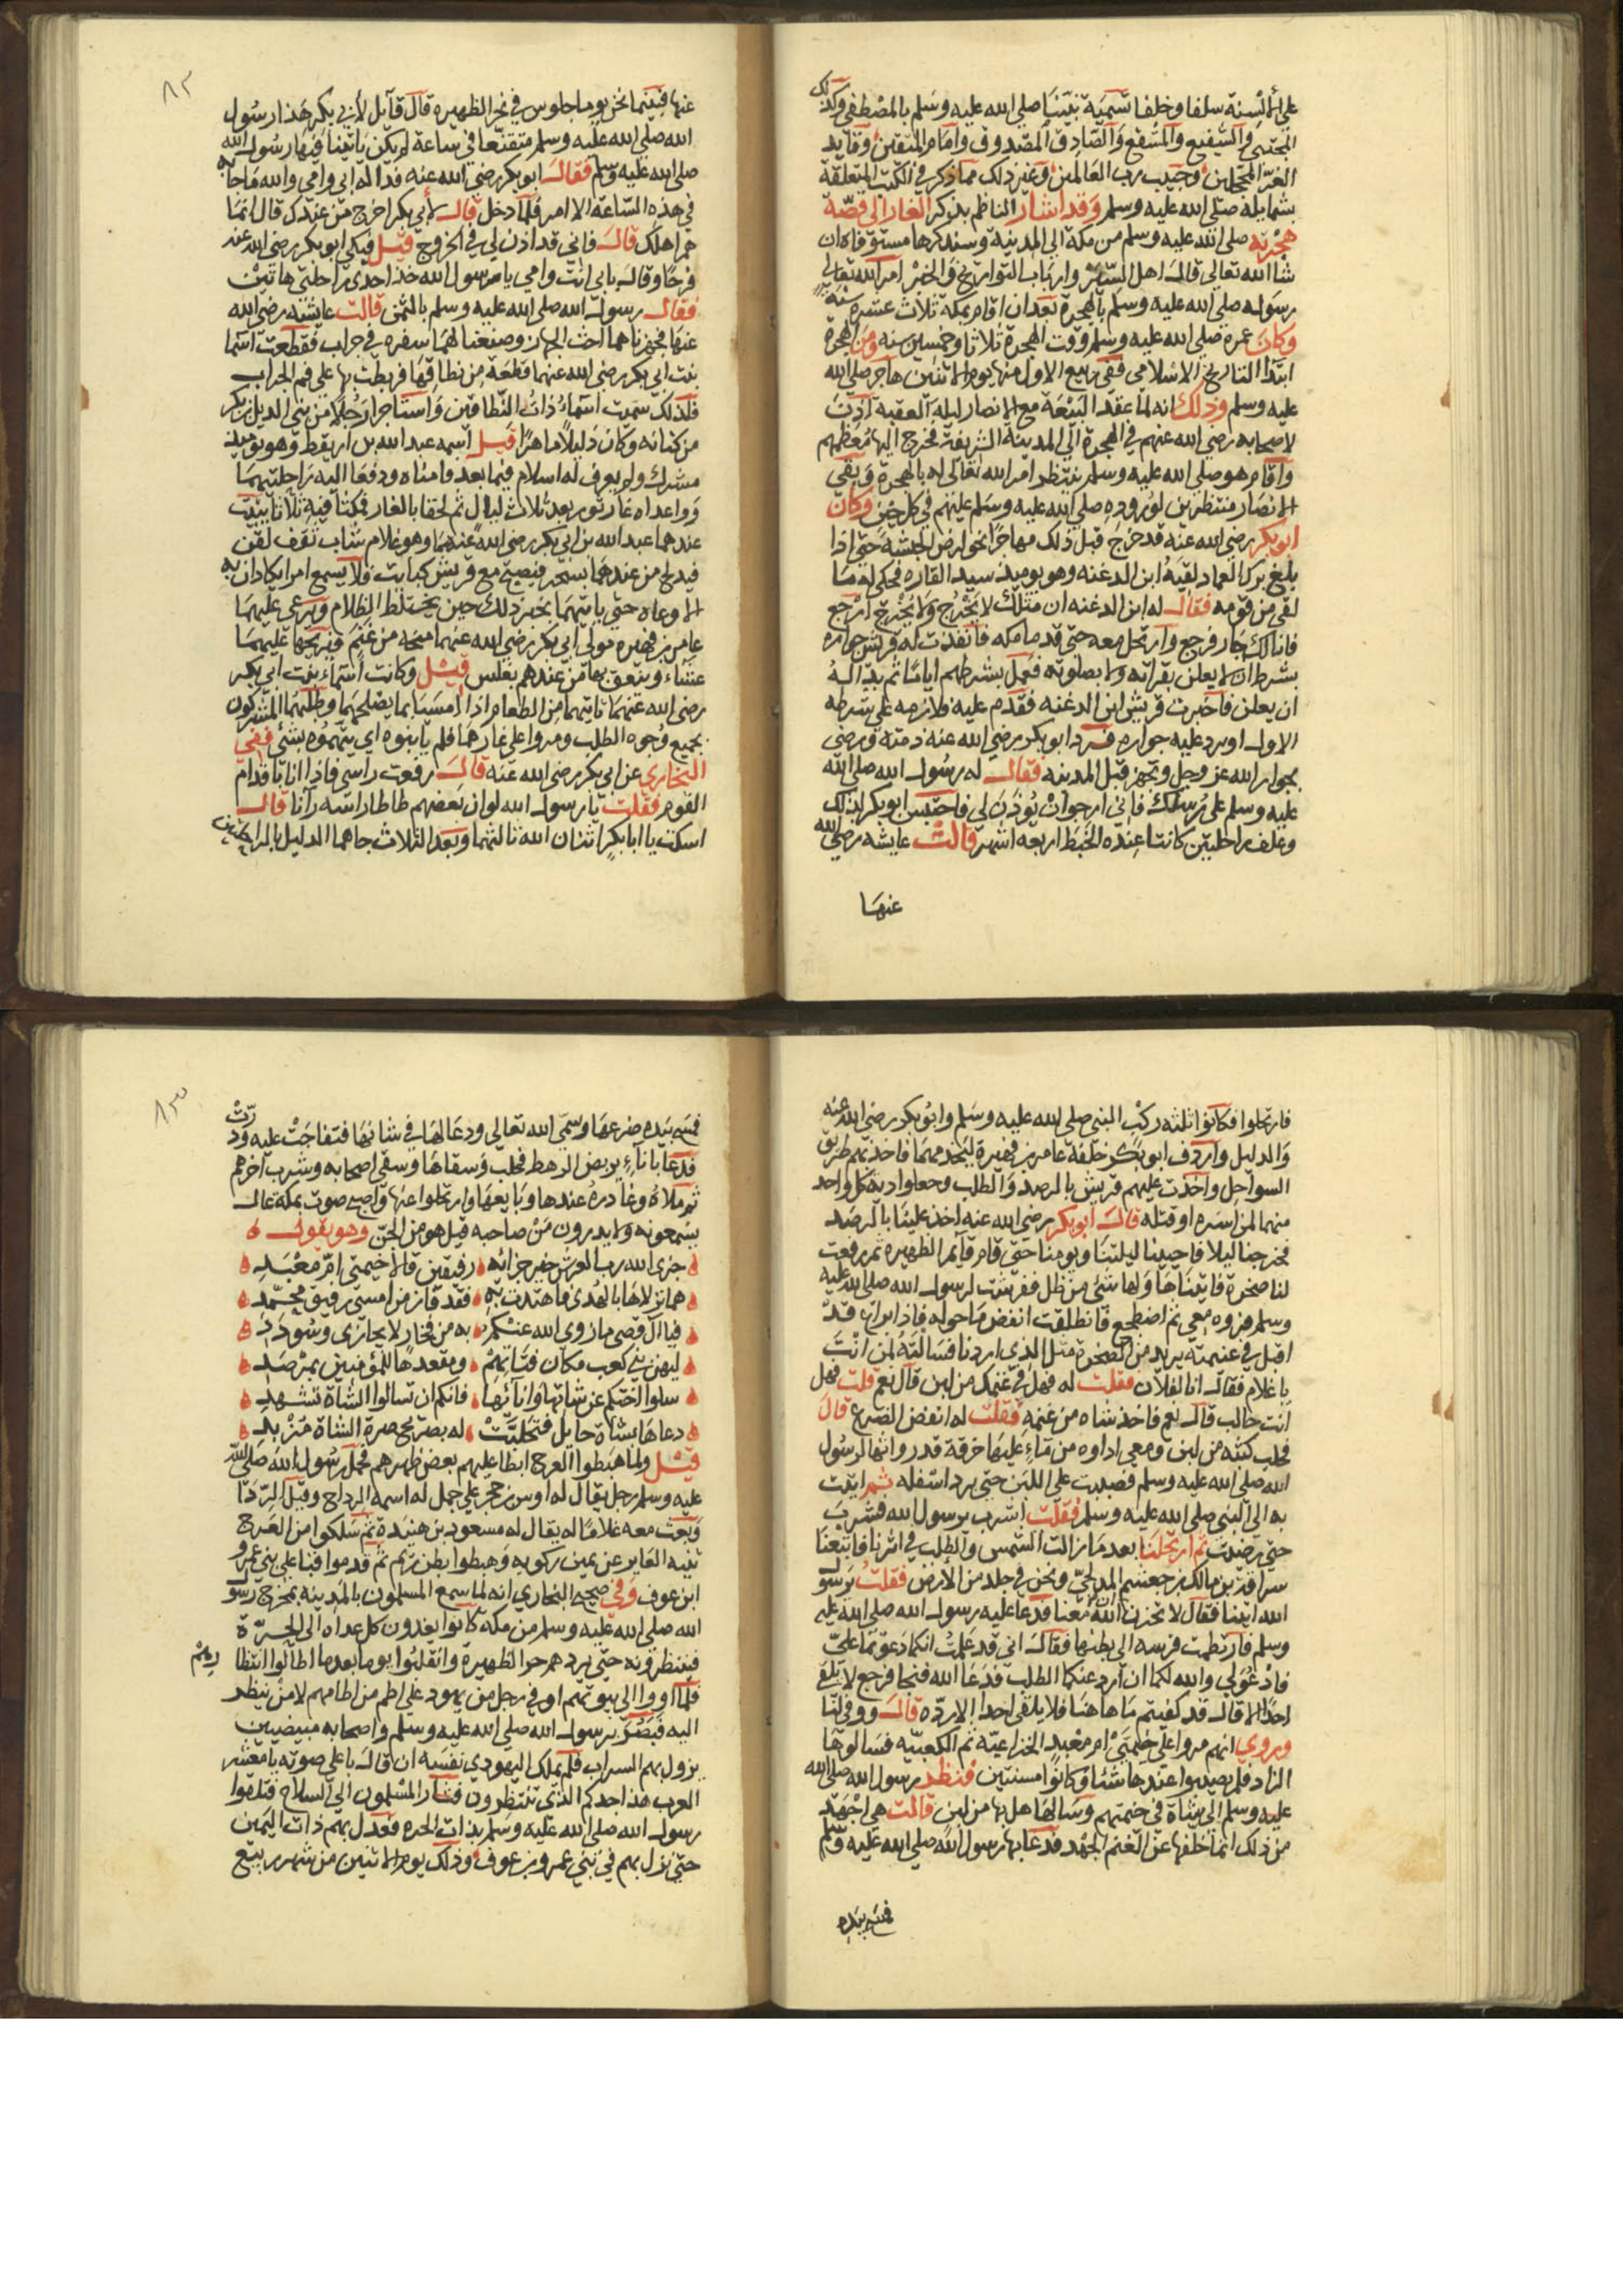 على ألسنة سلفا وخلفا تسمية نبينا صلى الله عليه وسلم بالمصطفى وكذلك
المجتبى والشفيع والمشفع والصادق المصدوق وامام المتقين وقايد
الغر المحجلين وحبيب رب العالمين وغير ذلك مما ذكر في الكتب المتعلقة
بشمايله صلى الله عليه وسلم وقد اشار الناظم بذكر الغار الى قصة
هجرته صلى الله عليه وسلم من مكة الى المدينة وسنذكرها مستوفاه ان
شاالله تعالى قال اهل السير وارباب التواريخ والخبر امر الله تعالى
رسوله صلى الله عليه وسلم بالهجرة بعد ان اقام بمكة ثلاث عشرة سنة
وكان عمره صلى الله عليه وسلم وقت الهجرة ثلاثا وخمسين سنه ومن الهجرة
ابتدا التاريخ الاسلامي ففي ربيع الاول منها يوم الاثنين هاجر صلى الله
عليه وسلم وذلك انه لما عقد البيعة مع الانصار ليلة العقبة اذن
لاصحابه رضي الله عنهم في الهجرة الى المدينة الشريفة فخرج اليها معظمهم
واقام هو صلى الله عليه وسلم ينتظر امر الله تعالى له بالهجرة وبقي
الانصار منتظرين لوروده صلى الله عليه وسلم عليهم في كل حين وكان
ابو بكر رضي الله عنه قد خرج قبل ذلك مهاجرا نحو ارض الحبشة حتى اذا
بلغ برك الغماد لقيه ابن الدغنه وهو يوميذ سيد القاره فحكى له ما
لقى من قومه فقال له ابن الدغنه ان مثلك لا يخرج ولا يخرج ارجع
فانا لك جار فرجع وارتحل معه حتى قدما مكه فانفذت له قريش جواره
بشرط ان لا يعلن بقراته ولا بصلوته فعمل بشرطهم اياما ثم بدا له
ان يعلن فاخبرت قريش ابن الدغنه فقدم عليه فلازمه على شرطه
الاول او يرد عليه جواره فرد ابو بكر رضي الله عنه ذمته ورضى
بجوار الله عز وجل وتجهز قبل المدينه فقال له رسول الله صلى الله
عليه وسلم على رسلك فاني ارجو ان يوذن لي فاحتبس ابو بكر لذلك
وعلف راحلتين كانتا عنده الخبط اربعه اشهر قالت عايشه رضي الله
عنها
٨٢
عنها فبينما نحن يوما جلوس في نحر الظهيره قال قايل لأبي بكر هذا رسول
الله صلى الله عليه وسلم متقنعا في ساعة لم يكن ياتينا فيها رسول الله
صلى الله عليه وسلم فقال ابو بكر رضي الله عنه فدا له ابي وامي والله ما جا به
في هذه الساعة الا امر فلما دخل قال لأبي بكر اخرج من عندك قال انما
هم اهلك قال فاني قد اذن لي في الخروج قيل فبكى ابو بكر رضي الله عنه
فرحا وقال بابي انت وامي يا رسول الله خذ احدى راحلتي هاتين
فقال رسول الله صلى الله عليه وسلم بالثمن قالت عايشه رضي الله
عنها فجهزناهما احث الجهاز وصنعنا لهما سفره في جراب فقطعت اسما
بنت ابي بكر رضي الله عنهما قطعة من نطاقها فربطت بها على فم الجراب
فلذلك سميت اسماء ذات النطاقين واستاجرا رجلا من بني الديل بن بكر
من كنانه وكان دليلا ماهرا قيل اسمه عبد الله بن اريقط وهو يوميذ
مشرك ولم يعرف له اسلام فيما بعد وامناه ودفعا اليه راحلتيهما
وواعداه غار ثور بعد ثلاث ليال ثم لحقا بالغار فمكثا فيه ثلاثا يبيت
عندهما عبد الله بن ابي بكر رضي الله عنهما وهو غلام شاب ثقف لقن
فيدلج من عندهما بسحر فيصبح مع قريش كبايت فلا يسمع امرا يكادان به
الا وعاه حتى ياتيهما بخبر ذلك حين يختلط الظلام ويرعى عليهما
عامر بن فهيره مولى ابي بكر رضي الله عنهما منحه من غنم فيريحها عليهما
عشاء وينعق بها من عندهم بغلس قيل وكانت اسماء بنت ابي بكر
رضي الله عنهما تاتيهما من الطعام اذا امسيا بما يصلحهما وطلبهما المشركون
بجميع وجوه الطلب ومروا على غارهما فلم يابنوه اي يتهموه بشئ ففي
البخاري عن ابي بكر رضي الله عنه قال رفعت راسي فاذا انا باقدام
القوم فقلت يا رسول الله لو ان بعضهم طاطا راسه رآنا قال
اسكت يا ابا بكر اثنان الله ثالثهما وبعد الثلاث جاهما الدليل بالراحلتين
فارتحلوا فكانوا ثلثه ركب النبي صلى الله عليه وسلم وابو بكر رضي الله عنه
والدليل واردف ابو بكر خلفه عامر بن فهيرة ليخدمهما فاخذ بهم طريق
السواحل واخذت عليهم قريش بالرصد والطلب وجعلوا دية كل واحد
منهما لمن اسره او قتله قال ابو بكر رضي الله عنه اخذ علينا بالرصد
فخرجنا ليلا فاحيينا ليلتنا ويومنا حتى قام قايم الظهيره ثم رفعت
لنا صخرة فاتيناها ولها شئ من ظل ففرشت لرسول الله صلى الله عليه
وسلم فروه معي ثم اضطجع فانطلقت انفض ما حوله فاذا براع قد
اقبل في غنيمته يريد من الصخرة مثل الذي اردنا فسالته لمن انت
يا غلام فقال انا لفلان فقلت له فهل في غنمك من لبن قال نعم قلت فهل
انت حالب قال نعم فاخذ شاه من غنمه فقلت له انفض الضرع قال
فحلب كثبه من لبن ومعي اداوه من ماء عليها خرقة قد رواتها لرسول
الله صلى الله عليه وسلم فصببت على اللبن حتى برد اسفله ثم اتيت
به الى النبي صلى الله عليه وسلم فقلت اشرب يرسول الله فشرب
حتى رضيت ثم ارتحلنا بعد ما زالت الشمس والطلب في اثرنا فاتبعنا
سراقة بن مالك بن جعشم المدلجي ونحن في جلد من الارض فقلت يرسول
الله اتينا فقال لا تحزن ان الله معنا فدعا عليه رسول الله صلى الله عليه
وسلم فارتطمت فرسه الى بطنها فقال اني قد علمت انكما دعوتما علي
فادعوا لي والله لكما ان ارد عنكما الطلب فدعا الله فنجا فرجع لا يلقى
احدا الا قال قد كفيتم ما هاهنا فلا يلقى احدا الا رده قال ووفى لنا
وروي انهم مروا على خيمتي ام معبد الخزاعية ثم الكعبيه فسالوها
الزاد فلم يصيبوا عندها شئا وكانوا مسنتين فنظر رسول الله صلى الله
عليه وسلم الى شاة في خيمتهم وسالها هل بها من لبن قالت هي اجهد
من ذلك انما خلفها عن الغنم الجهد فدعا بها رسول الله صلى الله عليه وسلم
فمسح بيده
٨٣
فمسح بيده ضرعها وسمى الله تعالى ودعا لها في شانها فتفاجت عليه ودرت
فدعا باناء يربض الرهط فحلب وسقاها وسقى اصحابه وشرب اخرهم
ثم ملاه وغادره عندها وبايعها وارتحلوا عنها واصبح صوت بمكة عال
يسمعونه ولا يدرون من صاحبه قيل هو من الجن وهو يقول
جزى الله رب العرش خير جزائه رفيقين قالا خيمتي ام معبد
هما نزلاها بالهدى فاهتدت به فقد فاز من امسى رفيق محمد
فيا آل قصي ما زوى الله عنكم به من فخار لا يجازى وسودد
ليهن بني كعب مكان فتاتهم ومقعدها للمؤمنين بمرصد
سلوا اختكم عن شاتها وانائها فانكم ان تسالوا الشاة تشهد
دعاها بشاة حايل فتحلبت له بصريح ضرة الشاة مزبد
قيل ولما هبطوا العرج ابطا عليهم بعض ظهرهم فحمل رسول الله صلى الله
عليه وسلم رجل يقال له اوس بن حجر على جمل له اسمه الرداح وقيل الردا
وبعث معه غلاما له يقال له مسعود بن هنيدة ثم سلكوا من العرج
ثنية العاير عن يمين ركوبه وهبطوا بطن ريم ثم قدموا قبا على بني عمرو
ابن عوف وفي صحيح البخاري انه لما سمع المسلمون بالمدينه بمخرج رسول
الله صلى الله عليه وسلم من مكة كانوا يغدون كل غداه الى الحرة
فينتظرونه حتى يردهم حر الظهيرة وانقلبوا يوما بعد ما اطالوا انتظارهم
فلما اووا الى بيوتهم اوفى رجل من يهود على اطم من اطامهم لامر ينظر
اليه فبصر برسول الله صلى الله عليه وسلم واصحابه مبيضين
يزول بهم السراب فلم يملك اليهودي نفسه ان قال با على صوته يا معشر
العرب هذا جدكم الذي تنتظرون فثار المسلمون الى السلاح فتلقوا
رسول الله صلى الله عليه وسلم بذات الحره فعدل بهم ذات اليمين
حتى نزل بهم في بني عمرو بن عوف وذلك يوم الاثنين من شهر ربيع